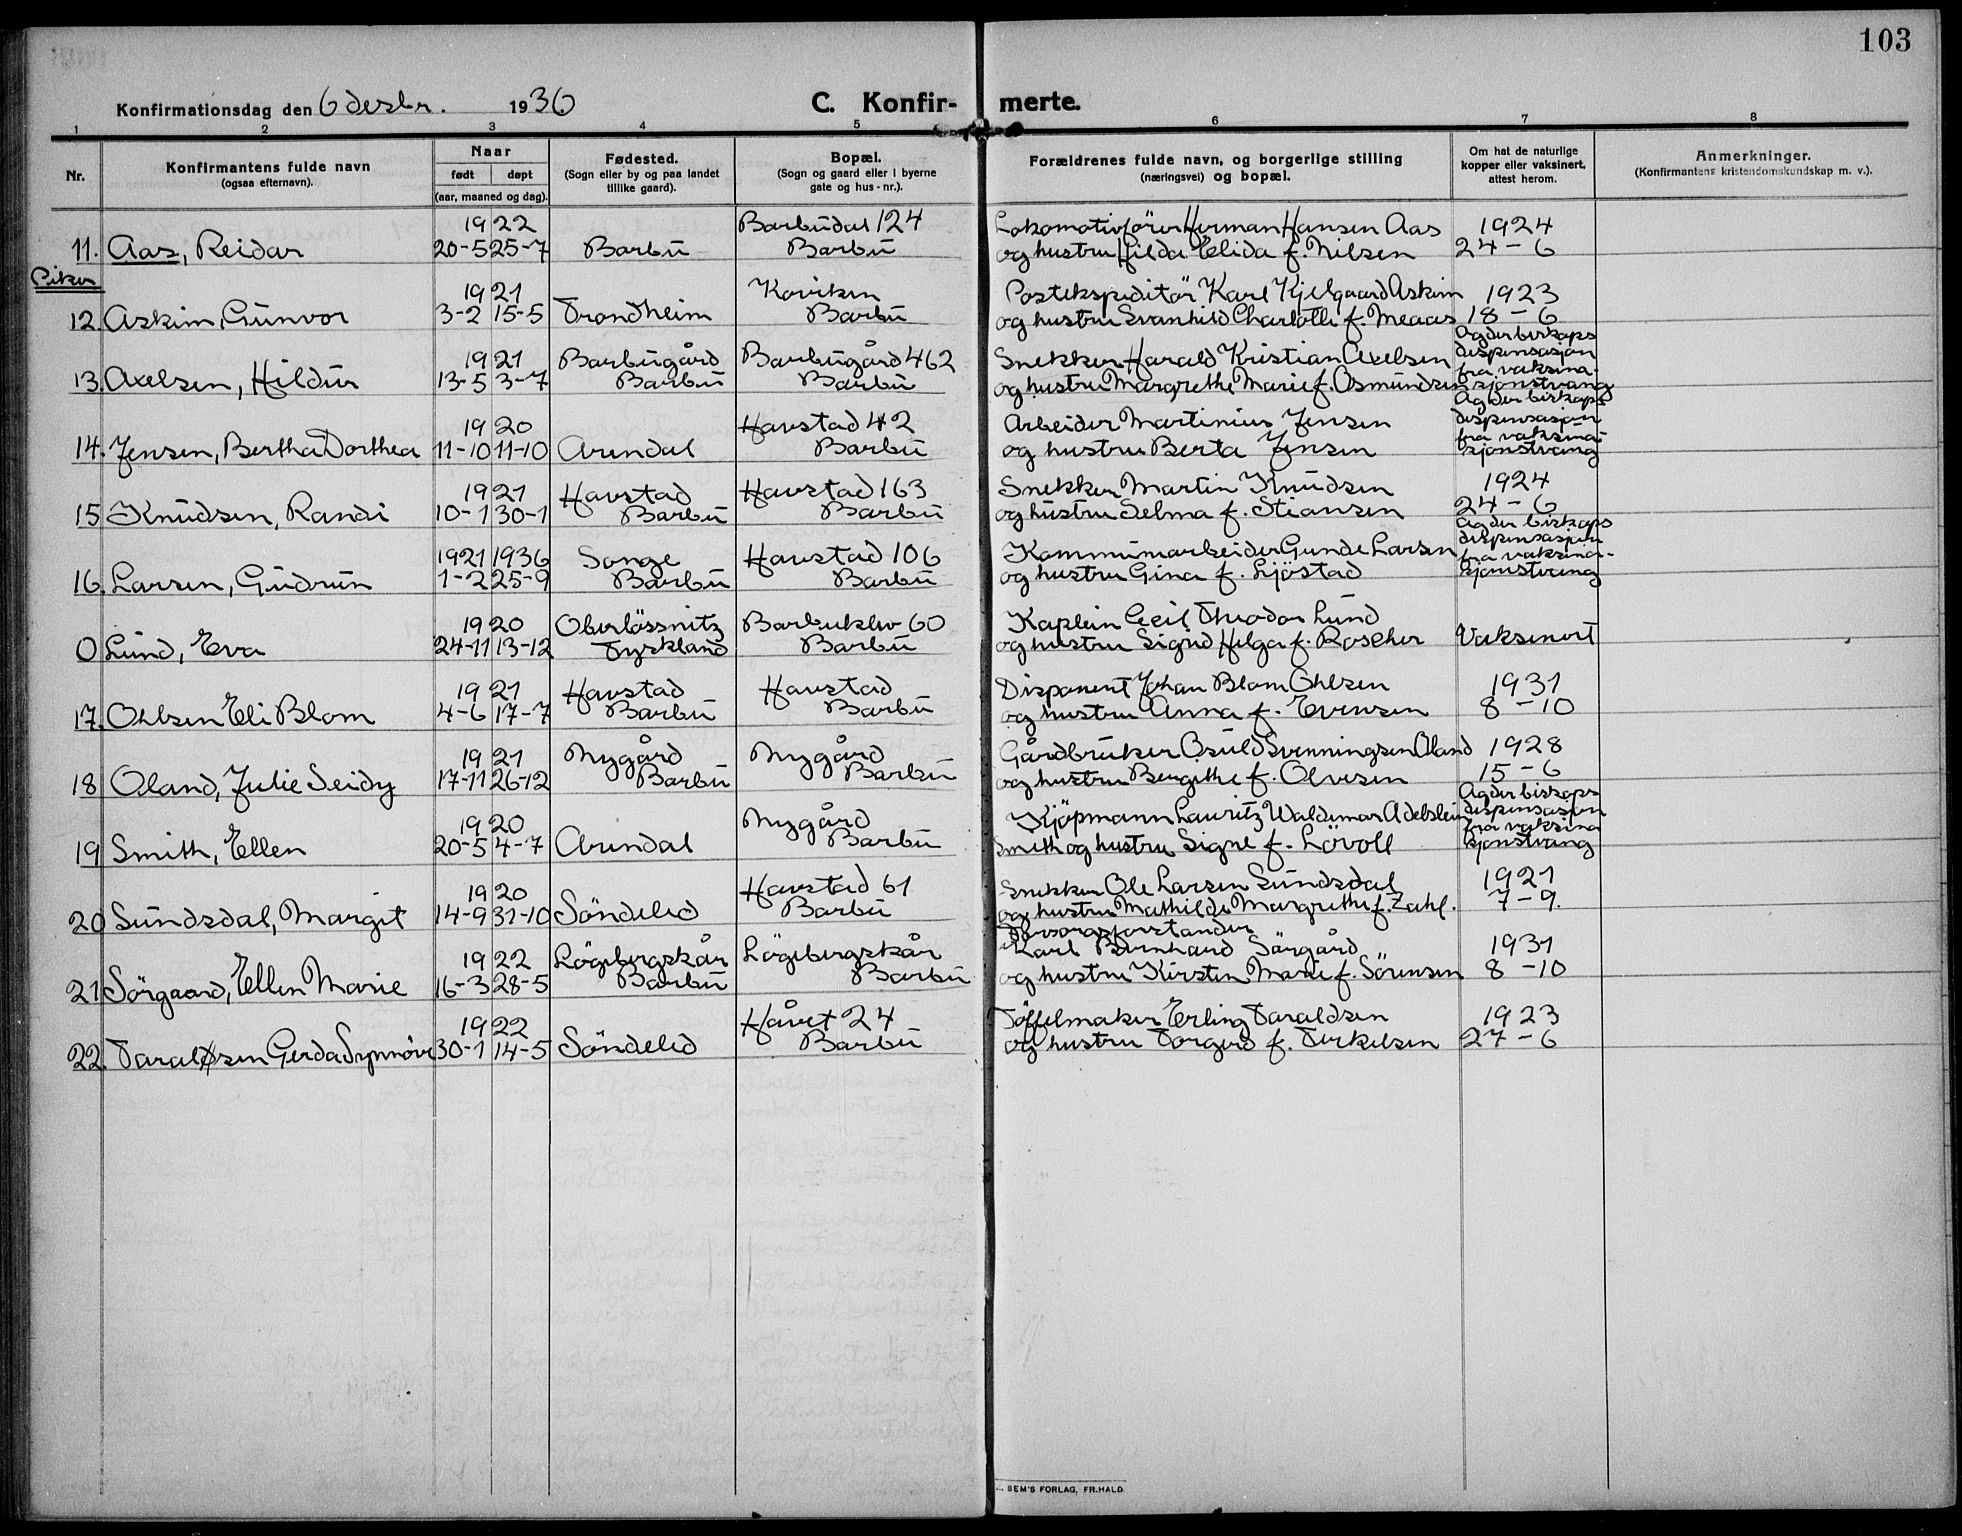 103
Konfirmationsdag den 6 desbr. 1936
C. Konfirmerte.
1 2 3 4 5 6 7 8
Nr.
Konfirmantens fulde navn
(ogsaa efternavn).
Naar
født døpt
(aar, maaned og dag).
Fødested.
(Sogn eller by og paa landet
tillike gaard).
Bopæl.
(Sogn og gaard eller i byerne
gate og hus-nr.).
Forældrenes fulde navn, og borgerlige stilling
(næringsvei) og bopæl.
Om hat de naturlige
kopper eller vaksinert,
attest herom.
Anmerkninger.
(Konfirmantens kristendomskundskap m. v.).
1922 Barbudal 124 Lokomotivförer Herman Hansen Aas 1924
11. Aas, Reidar 20-5 25-7 Barbu Barbu og hustru Hilda Elida f. Nilsen 24-6
Piker
1921 Koviken Postekspeditör Karl Kjelgaard Askim 1923
12. Askim, Gunvor 3-2 15-5 Trondheim Barbu og hustru Svanhild Charlotte f. Meaas 18-6
1921 Barbugård Barbugård 462 Snekker Harald Kristian Axelsen Agder biskaps dispensasjon
13. Axelsen, Hildur 13-5 3-7 Barbu Barbu og hustru Margrethe Marie f. Osmundsen fra vaksinasjonstvang
1920 Havstad 42 Arbeider Martinius Jensen Agder biskaps dispensasjon
14. Jensen, Bertha Dorthea 11-10 11-10 Arendal Barbu og hustru Berta Jensen fra vaksinasjonstvang
1921 Havstad Havstad 163 Snekker Martin Knudsen 1924
15 Knudsen, Randi 10-1 30-1 Barbu Barbu og hustru Selma f. Stiansen 24-6
1921 1936 Songe Havstad 106 Kommunarbeider Gunde Larsen Agder biskaps dispensasjon
16. Larsen, Gudrun 1-2 25-9 Barbu Barbu og hustru Gina f. Ljöstad fra vaksinasjonstvang
1920 Oberlössnitz Barbuklev 60 Kaptein Cecil Theodor Lund
0 Lund, Eva 24-11 13-12 Tyskland Barbu og hustru Sigrid Helga f. Roscher Vaksinert
1921 Havstad Havstad Disponent Johan Blom Ohlsen 1931
17. Ohlsen Eli Blom 4-6 17-7 Barbu Barbu og hustru Anna f. Evensen 8-10
1921 Nygård Nygård Gårdbruker Osuld Svenningsen Oland 1928
18 Oland, Julie Seidy 17-11 26-12 Barbu Barbu og hustru Bergithe f. Olvesen 15-6
1920 Nygård Kjöpmann Lauritz Waldemar Adelstein Agder biskaps dispensasjon
19 Smith, Ellen 20-5 4-7 Arendal Barbu Smith og hustru Signe f. Lövoll fra vaksinasjonstvang
1920 Havstad 61 Snekker Ole Larsen Sundsdal 1921
20 Sundsdal, Margit 14-9 31-10 Söndeled Barbu og hustru Mathilde Margrethe f. Zahl. 7-9.
Forsorgsforstander
1922 Lögebergskår Lögebergskår Karl Bernhard Sörgård 1931
21 Sörgaard, Ellen Marie 16-3 28-5 Barbu Barbu og hustru Kirsten Marie f. Sörensen 8-10
1922 Håvet 24 Töffelmaker Erling Taraldsen 1923
22. Taraldsen Gerda Synnöve 30-1 14-5 Söndeled Barbu og hustru Torgerd f. Terkelsen 27-6
SEM'S FORLAG, FR.HALD